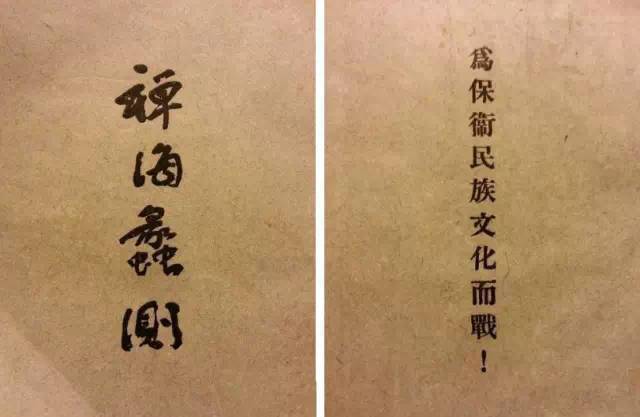 禅海蠡測
爲保衞民族文化而戰！